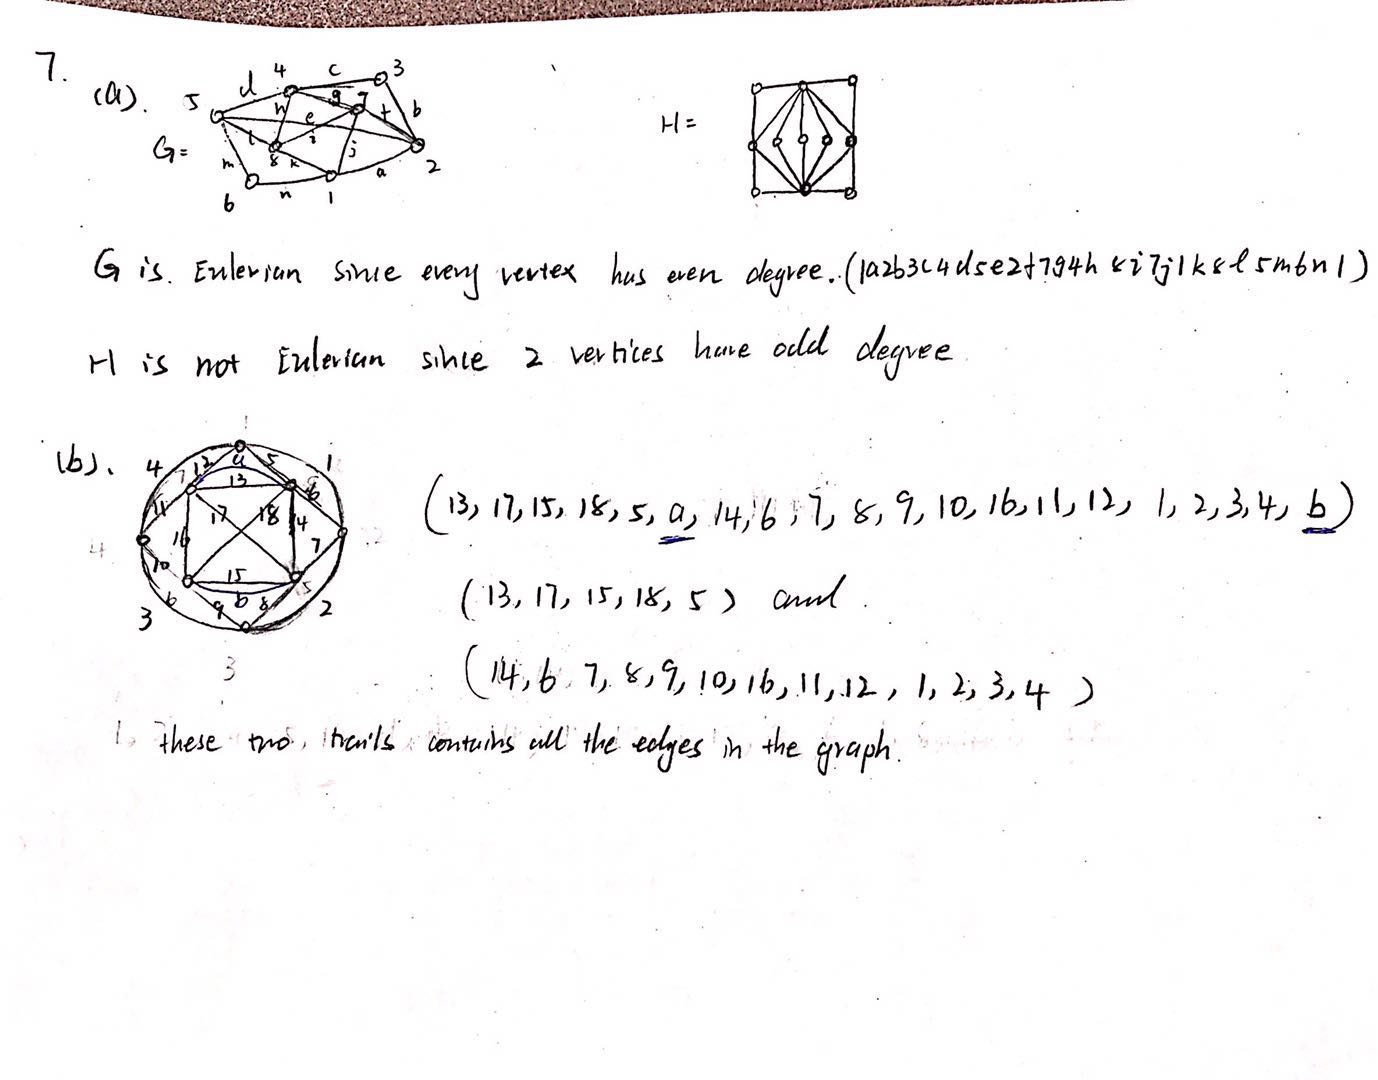 7.
(a).
G=
5 d 4 c 3
h g 7 f b
e
l 8 i j
m k a 2
6 n 1
H=
G is. Eulerian since every vertex has even degree. (1a2b3c4d5e2f7g4h8i7j1k8l5m6n1)
H is not Eulerian since 2 vertices have odd degree
(b).
1
4 12 a 5 1
13 6
11
17 18 14
4 16 7 2
10 15
b 9 b 8
3 2
3
(13, 17, 15, 18, 5, a, 14, 6, 7, 8, 9, 10, 16, 11, 12, 1, 2, 3, 4, b)
(13, 17, 15, 18, 5) and.
(14, 6 7, 8, 9, 10, 16, 11, 12, 1, 2, 3, 4)
These two, trails contains all the edges in the graph.